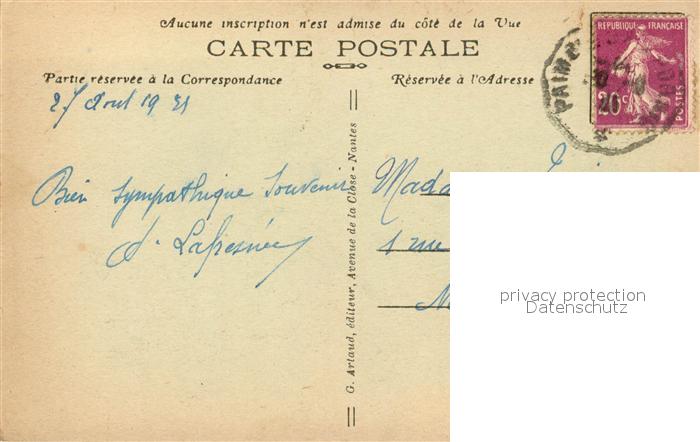 Aucune inscription n'est admise du côté de la Vue
CARTE POSTALE
Partie réservée à la Correspondance
Réservée à l'Adresse
27 Août 1931
Bien sympathique souvenir
G. Artaud, éditeur, Avenue de la Close - Nantes
Mada
1 rue
REPUBLIQUE FRANÇAISE
20c
POSTES
PAIM
privacy protection
Datenschutz